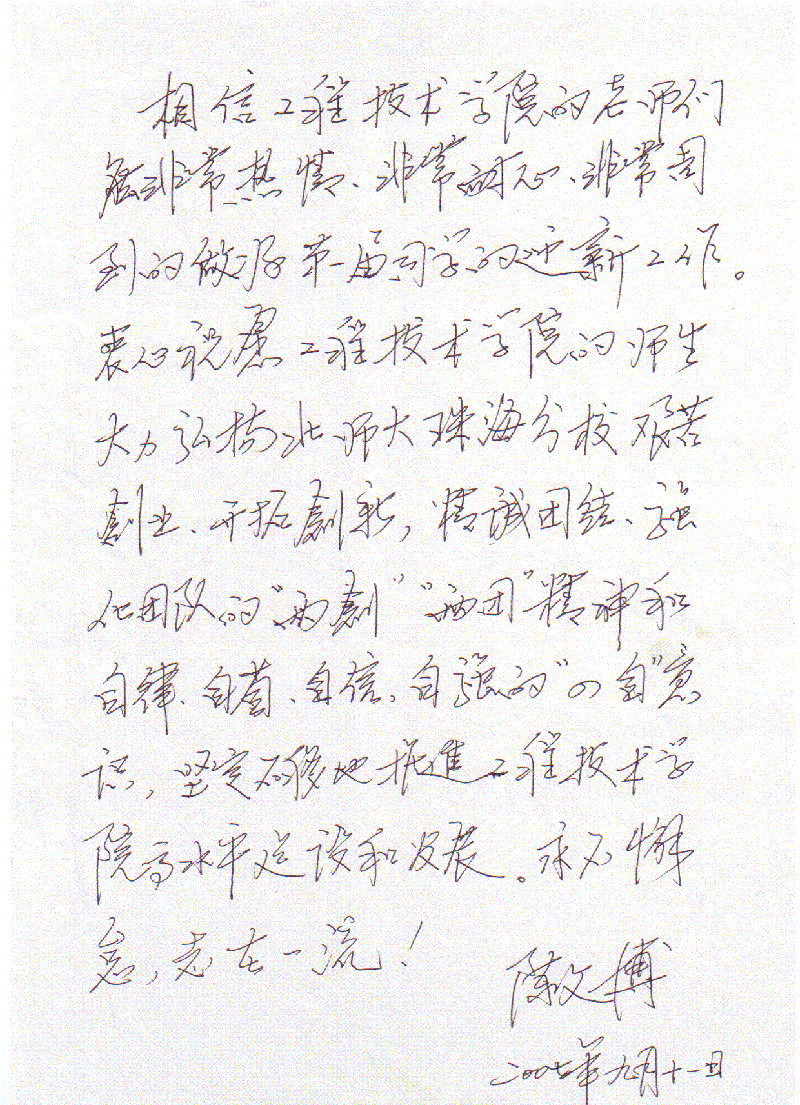 相信工程技术学院的老师们
会非常热情、非常耐心、非常周
到的做好第一届同学的迎新工作。
衷心祝愿工程技术学院的师生
大力弘扬北师大珠海分校艰苦
創业、开拓創新，精诚团结、强
化团队的"两創""两团"精神和
自律、自省、自信、自强的"四自"意
识，坚定不移地推進工程技术学
院高水平建设和发展。永不懈
怠，志在一流！
陈文博
二〇〇七年九月十一日